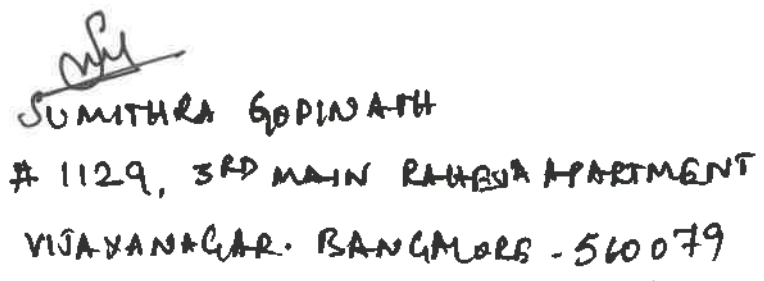 SUMITHRA GOPINATH
# 1129, 3RD MAIN RAHEJA APARTMENT
VIJAYANAGAR. BANGALORE - 560079